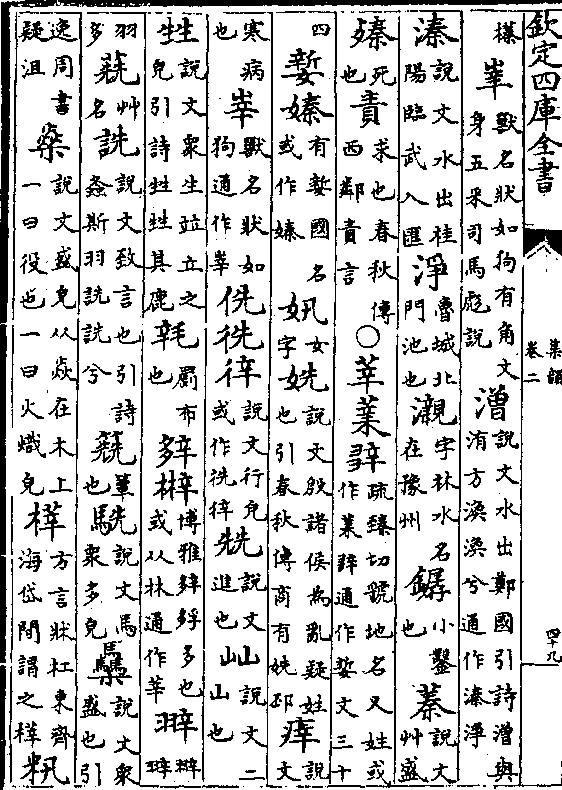 欽定四庫全書
集韻
卷二
四十九
樣 峷 獸名狀如狗有角文身五采司馬彪說 潧 說文水出鄭國引詩潧與洧方渙渙兮通作溱淨
溱 說文水出桂陽臨武入匯 淨 魯城北門池也 瀙 字林水名在豫州 小鑿也 蓁 說文艸盛
殝 死也 責 求也春秋傳西鄰責言 ○ 莘 疏臻切號地名又姓或作通作㜪文三十
四 㜪嫀 有㜪國名或作嫀 女字 姺 說文殷諸侯為亂疑姓也引春秋傳商有姺邳 㾕 說文
寒病也 峷 獸名狀如狗通作莘 侁 說文行皃或作 兟 說文進也 屾 說文二山也
甡 說文衆生竝立之皃引詩甡甡其鹿 罽布也 博雅多也或从林通作莘
羽多 艸名 詵 說文致言也引詩螽斯羽詵詵兮 篳也 駪 說文馬衆多皃 說文衆盛也引
逸周書疑沮 燊 說文盛皃从焱在木上一曰役也一曰火熾皃 樺 方言牀杠東齊海岱閒謂之樺 籸